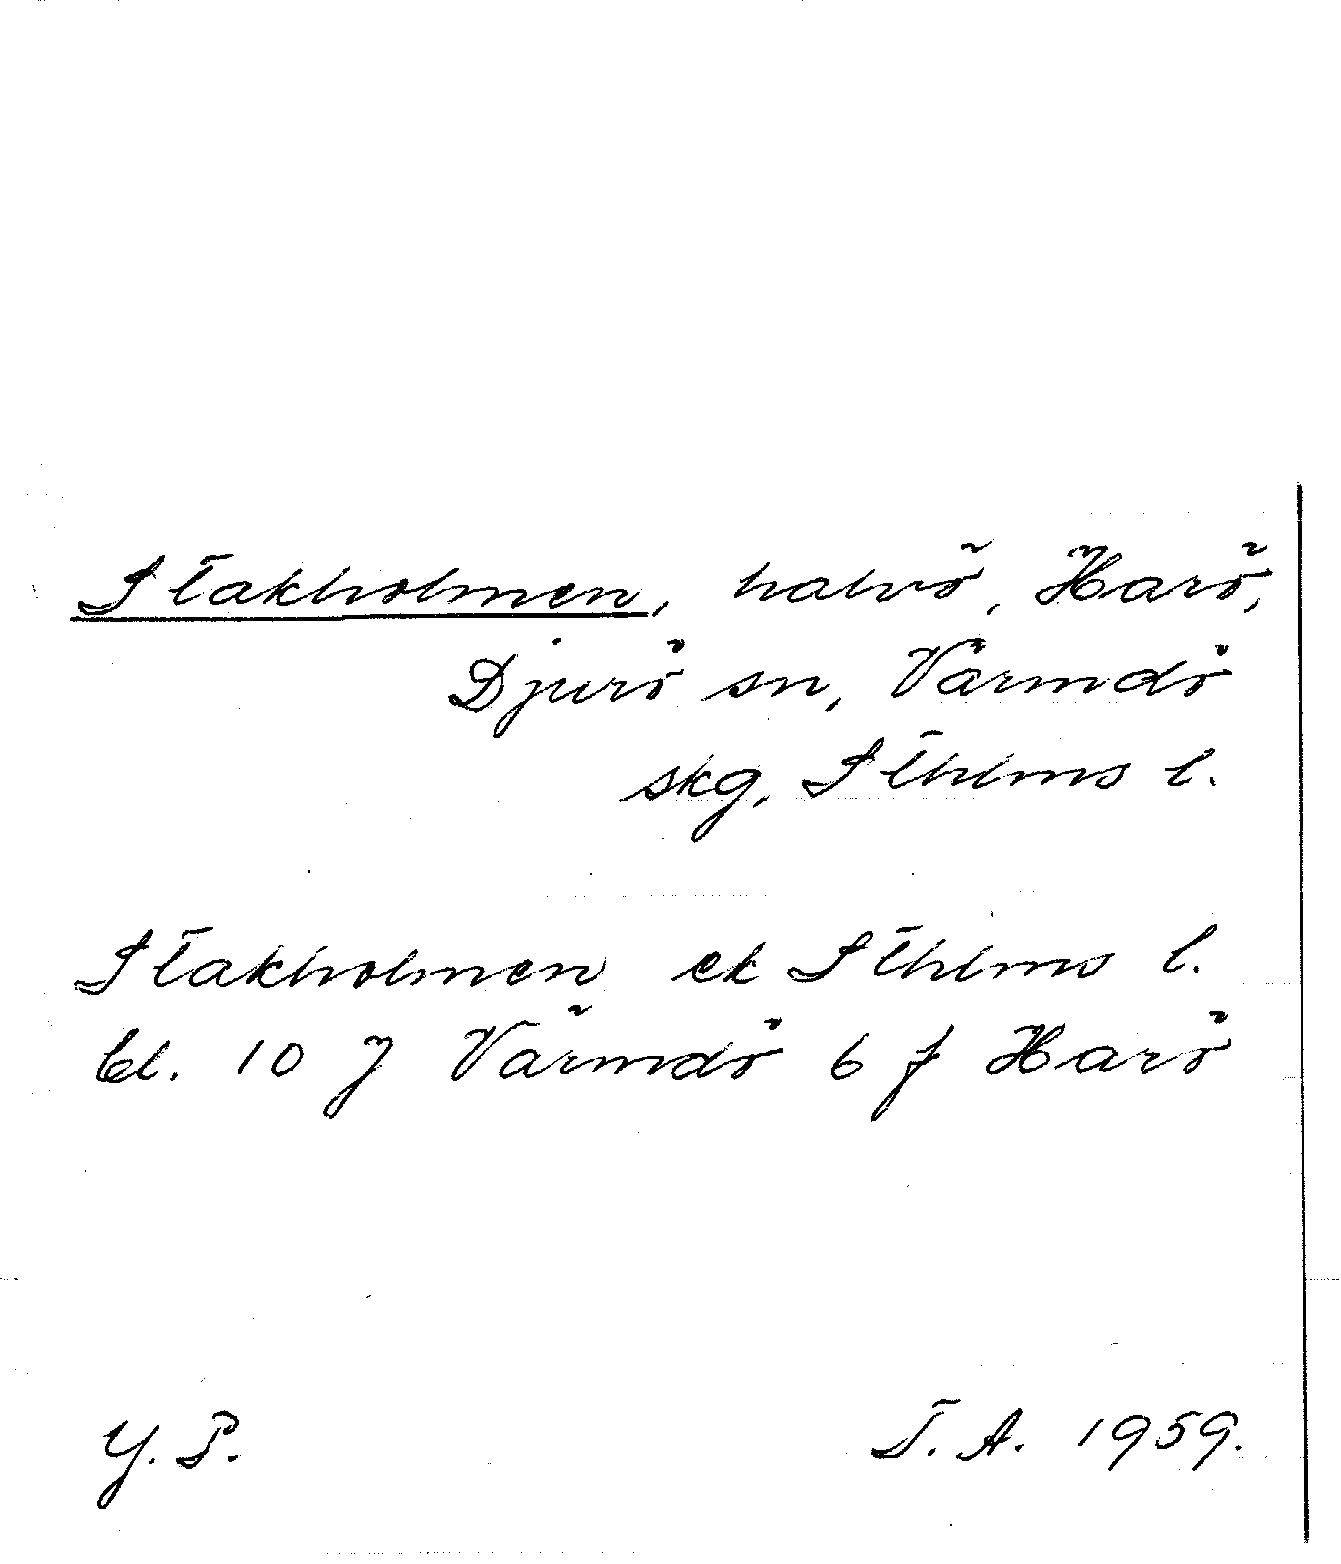 Stakholmen, halvö, Harö,
Djurö sn, Värmdö
skg, Sthlms l.
Stakholmen ek Sthlms l.
bl. 10 J Värmdö 6 f Harö
Y. P. T. A. 1959.